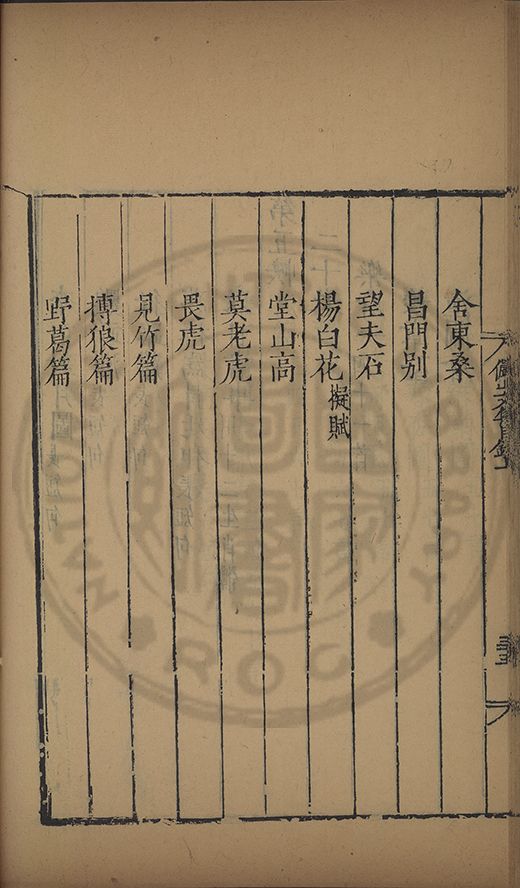 舍東桑
昌門別
望夫石
楊白花擬賦
堂山高
莫老虎
畏虎
見竹篇
搏狼篇
野葛篇